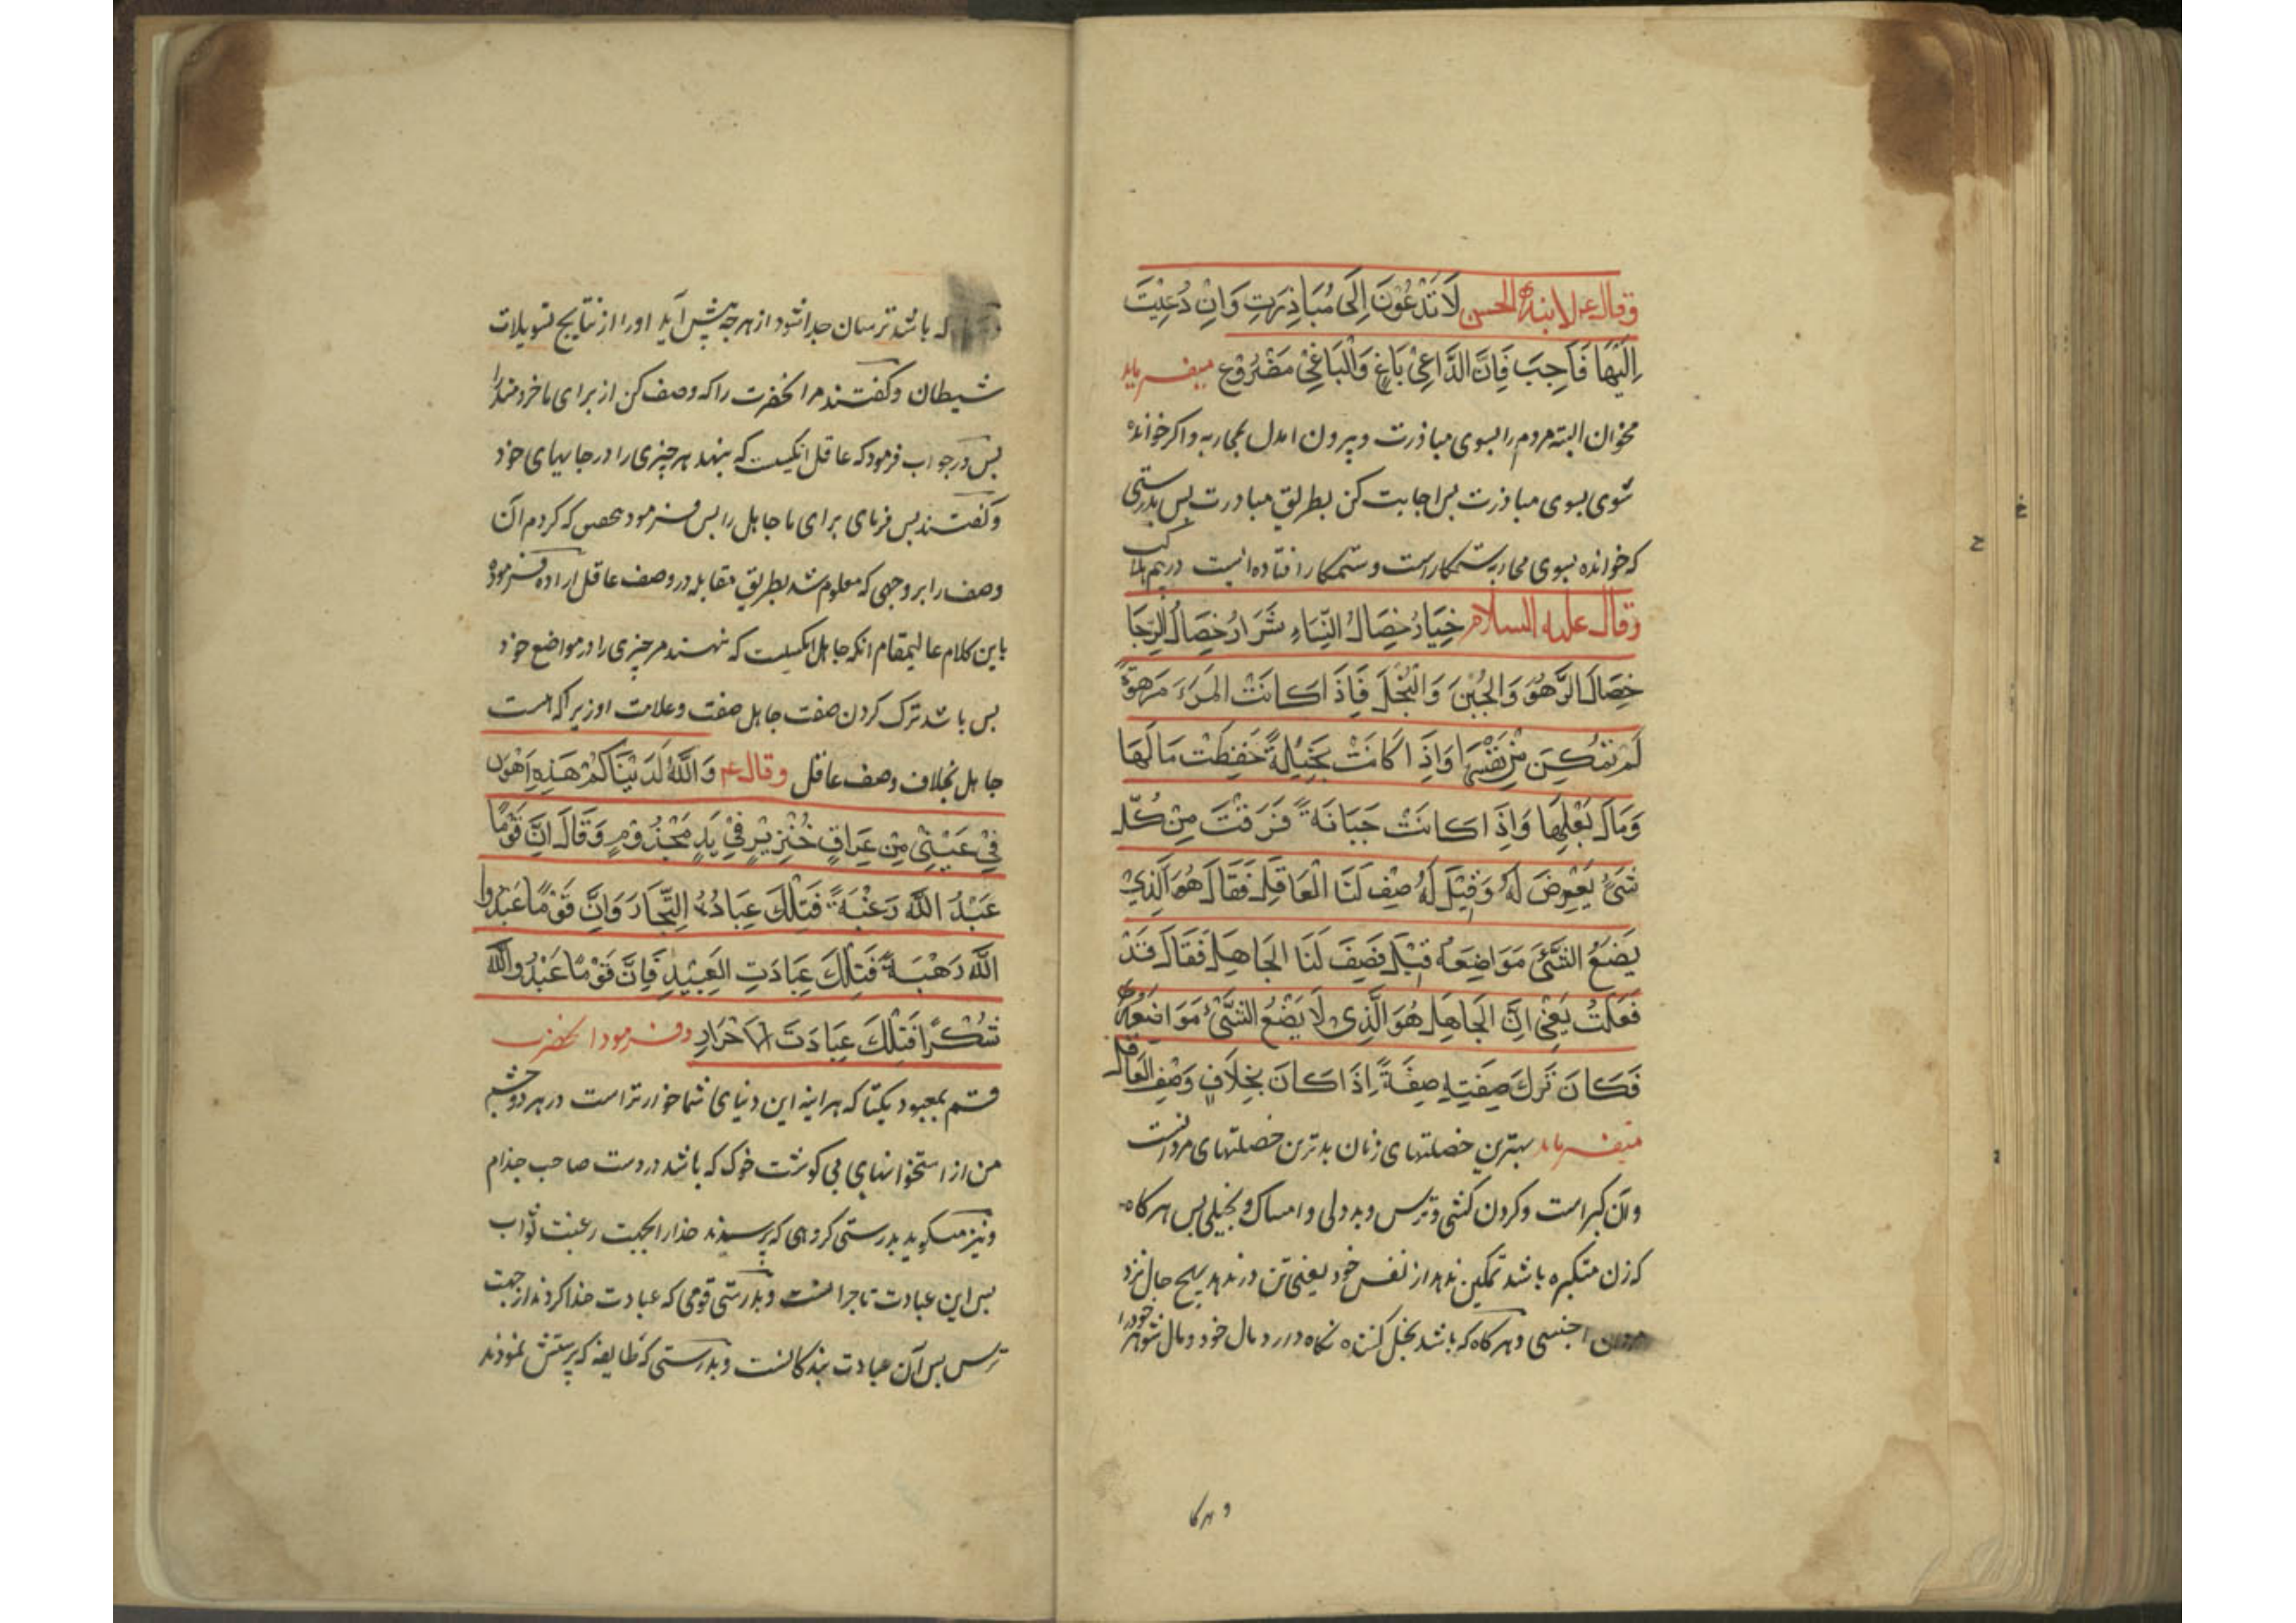 وقال ع لابنه الحسن لَا تَدْعُوَنَ اِلَى مُبَاذِرَتِ وَاِنْ دُعِيْتَ
اِلَيْهَا فَاَجِبَ فَاِنَّ الدَّاعِىْ بَاغٍ وَالْبَاغِىْ مَصْرُوْعٌ ميفرمايد
مخوان البته مردم را بسوى مباذرت وبيرون امدن بمحاربه واكر خوانده
شوى بسوى مباذرت پس اجابت كن بطريق مبادرت پس بدرستى
كه خوانده بسوى محاربه ستمكار است وستمكار افتاده است در
وقال عليه السلام خِيَارُ خِصَالُ النِّسَاءِ شَرَارُ خِصَالُ الرِّجَا
خِصَالَ الزَّهْوُ وَالجُبْنَ وَالبُخْلَ فَاِذَا كَانَتْ المَرْءَ مَزْهُوَّةً
لَمْ تَمْكِنَ مِنْ نَفْسِهَا وَاِذَا كَانَتْ بَخِيْلَةً حَفِظَتْ مَالَهَا
وَمَالَ بَعْلِهَا وَاِذَا كَانَتْ جَبَانَةً فَرَقَتْ مِنْ كُلِّ
شَىْءٍ يَعْرِضَ لَهُ وَقِيْلَ لَهُ صِفْ لَنَا الْعَاقِلَ فَقَالَ هُوَ الَّذِيْ
يَضَعُ الشَّىْءَ مَوَاضِعَهُ قِيْلَ فَصِفَ لَنَا الجَاهِلَ فَقَالَ قَدْ
فَعَلْتُ يَعْنِى اِنَّ الجَاهِلَ هُوَ الَّذِى لَا يَضَعُ الشَّىْءَ مَوَاضِعَهُ
فَكَانَ تَرْكَ صِفَتِهِ صِفَةً اِذَا كَانَ بِخِلَافٍ وَصْفِ العَاقِلِ
ميفرمايد بهترين خصلتهاى زنان بدترين خصلتهاى مردانست
وان كبر است وكردن كشى وترس وبددلى وامساك وبخيلى پس هركاه
كه زن متكبره باشد تمكين ندهد از نفس خود يعنى تن در ندهد بهيچ حال نزد
مردان اجنبى وهركاه كه باشد بخل كننده نكاه دارد مال خود ومال شوهر خود را
وهركا
كه باشد ترسان جدا شود از هرچه پيش آيد او را از نتايج تسويلات
شيطان وكفتند مر انحضرت را كه وصف كن از براى ما خردمند را
پس در جواب فرمود كه عاقل انكيست كه بنهد هر چيزى را در جايهاى خود
وكفتند پس فرماى براى ما جاهل را پس فرمود كه كردم آن
وصف را بر وجهى كه معلوم شد بطريق مقابله در وصف عاقل اراده فرموده
باين كلام عاليمقام انكه جاهل انكيست كه ننهند هر چيزى را در مواضع خود
پس باشد ترك كردن صفت جاهل صفت وعلامت او زيرا كه هست
جاهل بخلاف وصف عاقل وقال ع وَاللَّهُ لَدُنْيَاكُمْ هَذِهِ اَهْوَن
فِيْ عَيْنِىْ مِنْ عِرَاقٍ خِنْزِيْرٍ فِيْ يَدِ مَجْذُوْمٍ وَقَالَ اِنَّ قَوْمًا
عَبْدُ اللَّهَ رَغْبَةً فَتِلْكَ عِبَادَةُ التِّجَارَ وَاِنَّ قَوْمًا عَبَدُوا
اللَّهَ رَهْبَةً فَتِلْكَ عِبَادَتِ العَبِيْدِ فَاِنَّ قَوْمًا عَبْدُو اللَّه
شُكْرًا فَتِلْكَ عِبَادَتَ الْاَحْرَارِ وفرمود انحضرت
قسم بمعبود يكتا كه هراينه اين دنياى شما خوارتر است در هر دو چشم
من از استخوانهاى بى كوشت خوك كه باشد در دست صاحب جذام
ونيز ميكويد بدرستى كروهى كه پرسيدند خدا را بجهت رغبت ثواب
پس اين عبادت تاجرانست وبدرستى قومى كه عبادت خدا كردند از جهت
ترس پس آن عبادت بندكانست وبدرستى كه طايفه كه پرستش نمودند